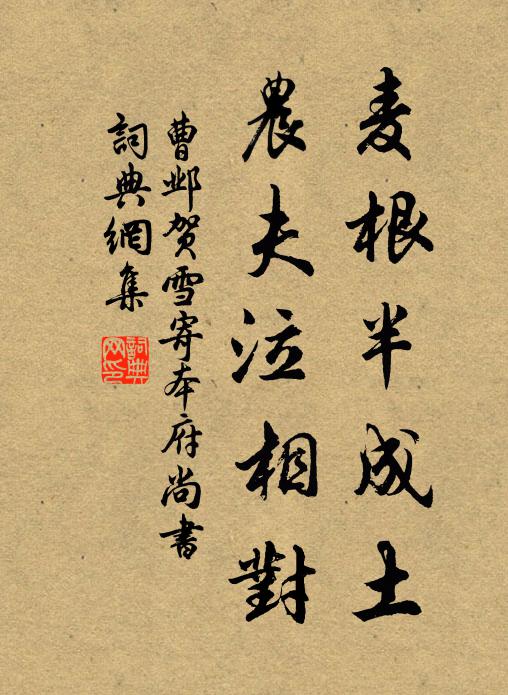 麦根半成土
農夫泣相對
曹邺贺雪寄本府尚書
詞典網集
詞典
网印